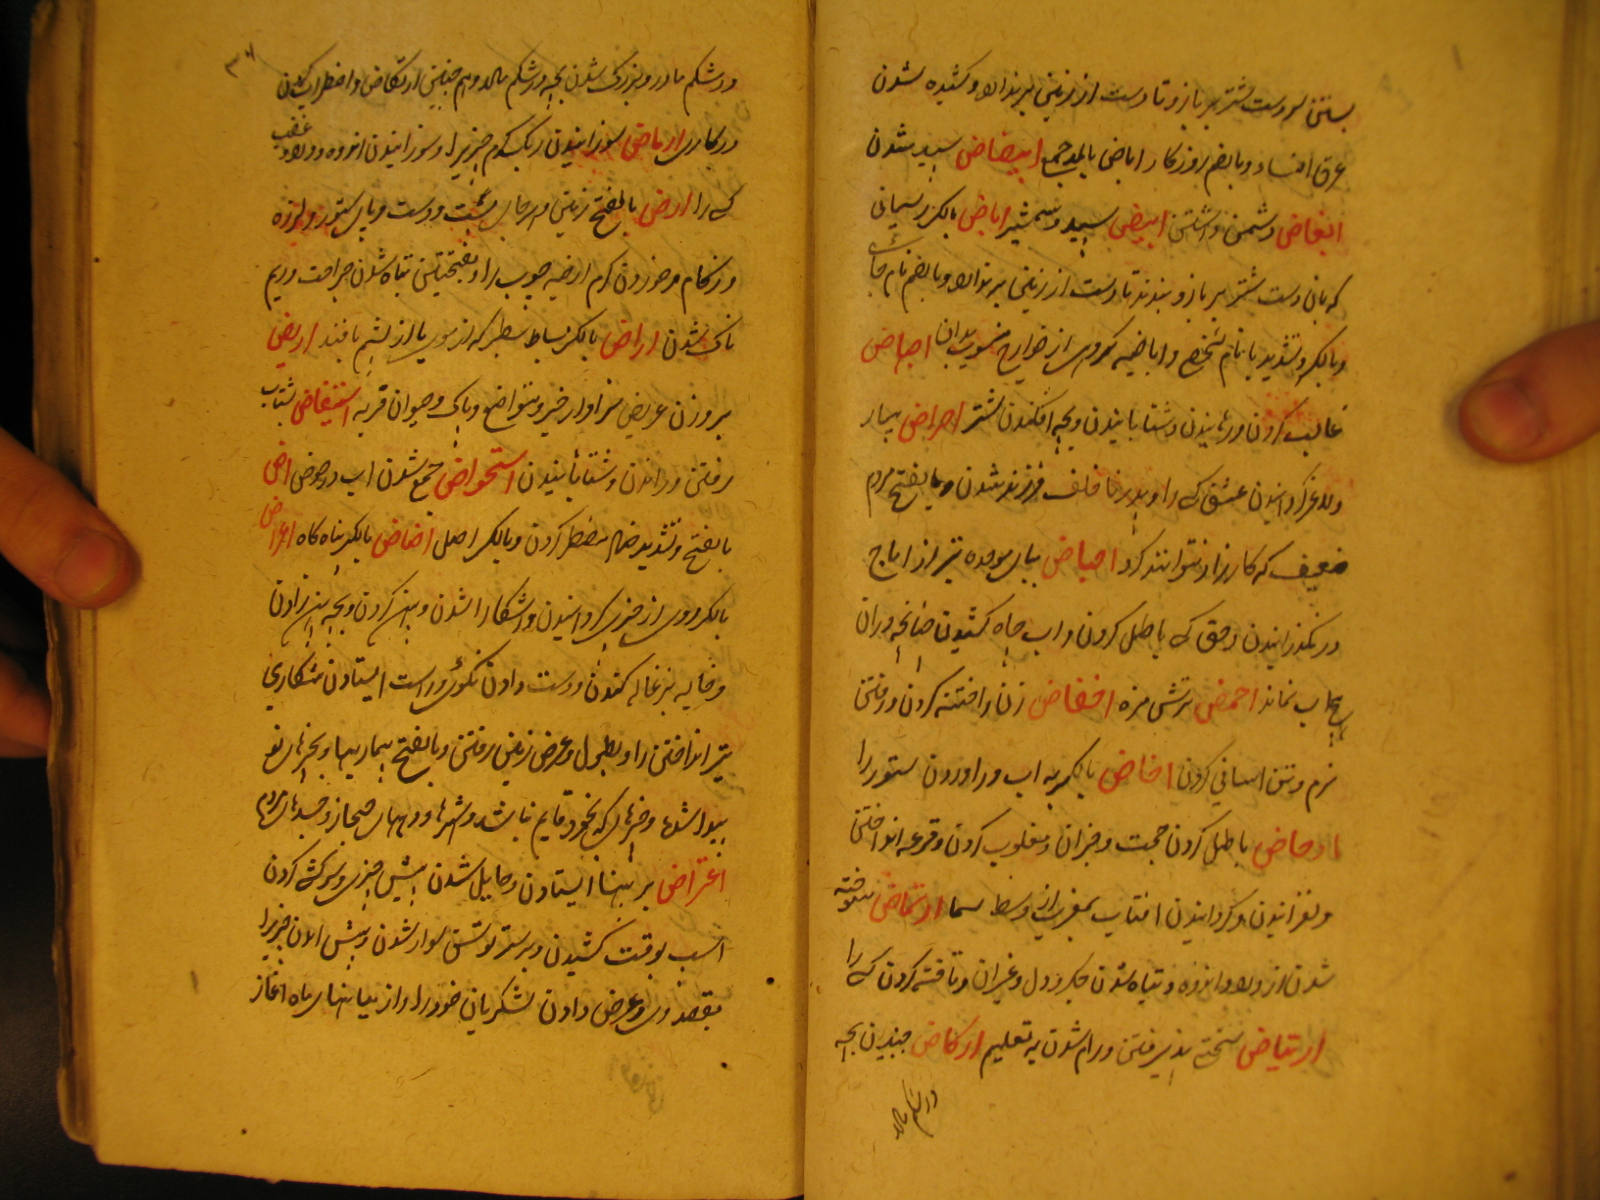 بستن سر دست شتر بر بازو تا دست از زمین بر نداند و کشیده شدن
عرق النساء و بالضم روزگار اباض بالمد جمع ابیضاض سپید شدن
ابغاض دشمن داشتن ابیض سپید و شمشیر اباض بالکسر ریسمانی
که بان دست شتر بر بازو بندند تا دست از زمین بر نداند و بالضم نام جائی
و بالکسر و تشدید با نام شخصی و اباضیه گروهی از خوارج منسوب بدان اجهاض
غالب کردن و رهانیدن و شتابانیدن و بچه افکندن شتر احراض بیمار
و لاغر گردانیدن عشق کسی را و پدر ناخلف فرزند شدن و بالفتح مردم
ضعیف که کارزار نتوانند کرد احباض ببای موحده تیر از اماج
در گذرانیدن و حق کسی باطل کردن و اب چاه کشیدن چنانچه دران
هیچ اب نماند احمض ترش مزه افضاض زنان را فتنه کردن و رفتن
نرم و تن اسانی کردن اخاض بالکسر به اب در اوردن ستور را
ادحاض باطل کردن حجت و جزان و مغلوب کردن و قرعه انداختن
و لغزانیدن و گردانیدن افتاب بمغرب از وسط سما ارتماض سوخته
شدن از درد و اندوه و تباه شدن جگر و دل و غیران و تافته کردن کسی را
ارتیاض سختی پذیرفتن و رام شدن به تعلیم ارکاض جنبیدن بچه
در شکم مادر
در شکم مادر و بزرگ شدن بچه در شکم مادر و هم چنین ارتکاض و اضطراب کردن
در کاری ارماض سوزانیدن ریگ گرم چیزیرا و سوزانیدن اندوه و درد و غضب
کسی را ارض بالفتح زمین و هر جای پست و دست و پای ستور و لرزه
و زکام و خوردن کرم ارضه چوب را و بفتحتین تباه شدن جراحت و ریم
ناک شدن اراض بالکسر بساط سطبر که از موی یا از پشم بافند اریض
بر وزن عریض سزاوار خیر و متواضع و پاک و حیوان فربه استیفاض شتاب
رفتن و راندن و شتابانیدن استحواض جمع شدن اب در حوض اض
بالفتح و تشدید ضاد مضطر کردن و بالکسر اصل اضاض بالکسر پناه گاه اعراض
بالکسر روی از چیزی گردانیدن و اشکارا شدن و پهن کردن و بچه پهن زادن
و خایه بزغاله کندن و دست دادن نکوئی و راست ایستادن شکاری
تیر انداختن را و بطول و عرض زمین رفتن و بالفتح بیماریها و چیزهای نو
پیدا شده و چیزهای که بخود قایم نباشد و شهرها و دههای حجاز و جسدهای مردم
اعتراض بر پهنا ایستادن و حایل شدن پیش چیزی و سرکشی کردن
اسب بوقت کشیدن و بر ستر توسن سوار شدن و پیش امدن چیزیرا
بقصد وی و عرض دادن لشکریان خود را و از میانهای ماه اغاز